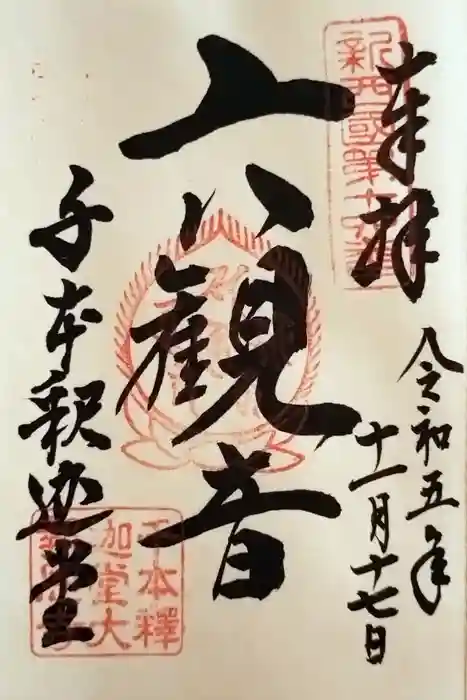 奉拝
令和五年
十一月十七日
六観音
千本釈迦堂
新西國第十六番
千本釋
迦堂大
報恩寺